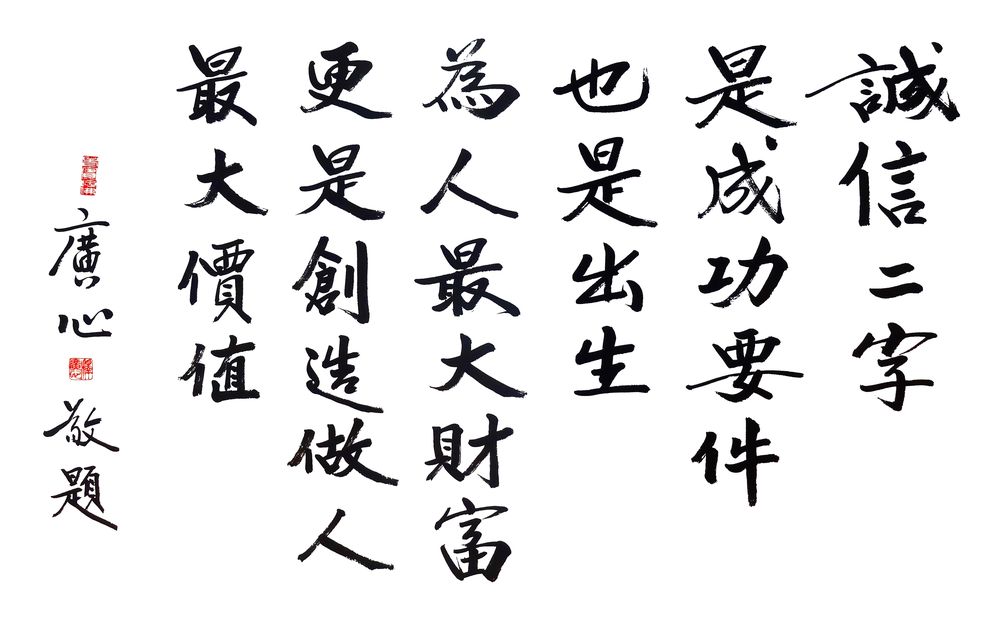 誠信二字
是成功要件
也是出生
為人最大財富
更是創造做人
最大價值
廣心
敬題